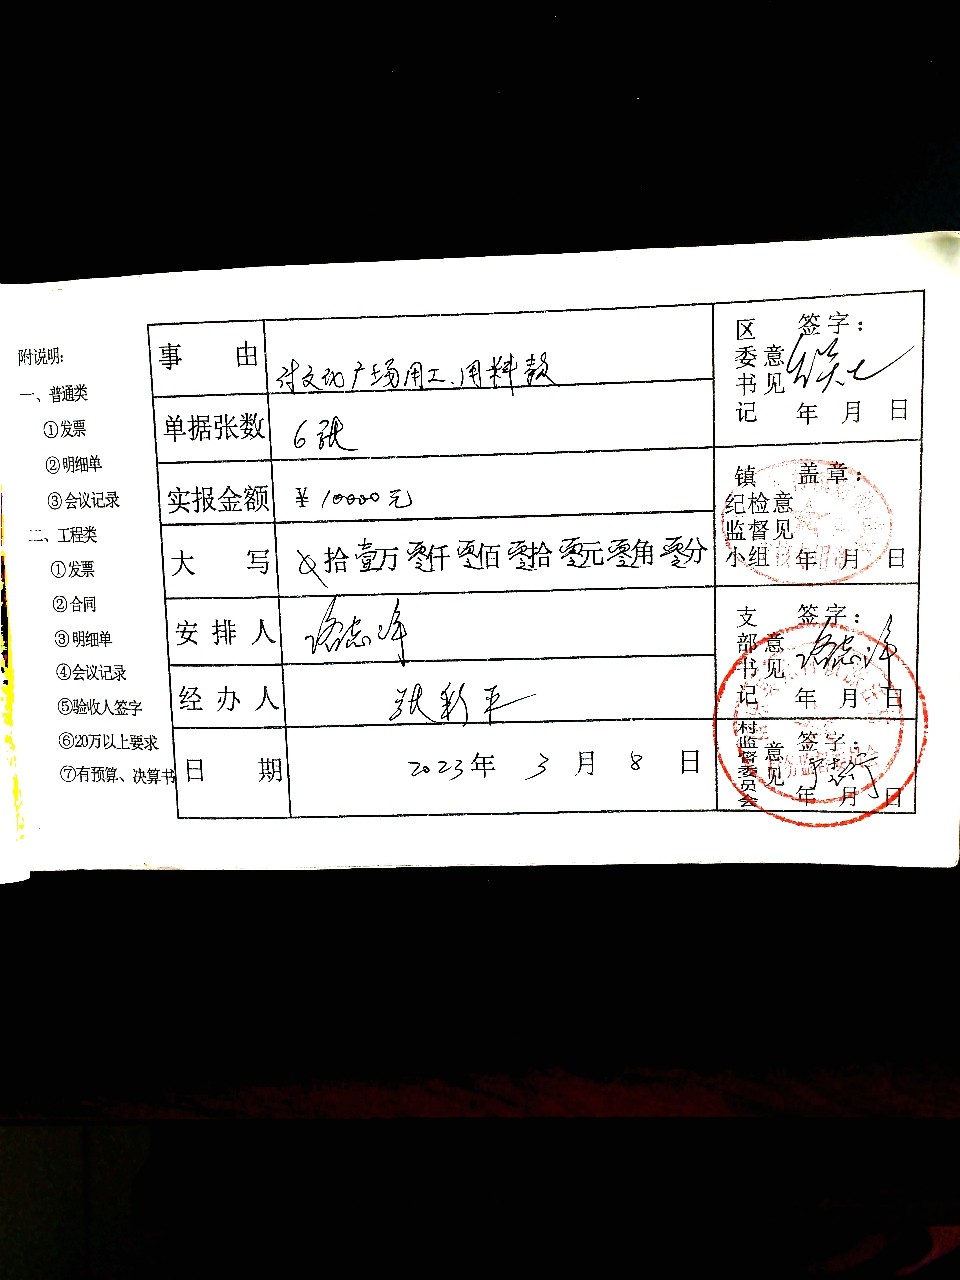 附说明:
一、普通类
①发票
②明细单
③会议记录
二、工程类
①发票
②合同
③明细单
④会议记录
⑤验收人签字
⑥20万以上要求
⑦有预算、决算书
事由 付文化广场用工、用料款
单据张数 6张
实报金额 ¥10000元
大写 拾壹万零仟零佰零拾零元零角零分
安排人
经办人 张彩平
日期 2023年3月8日
区委书记意见 签字:
年月日
镇纪检监督小组意见 盖章:
年月日
支部书记意见 签字:
年月日
村监督委员会意见 签字:
年月日